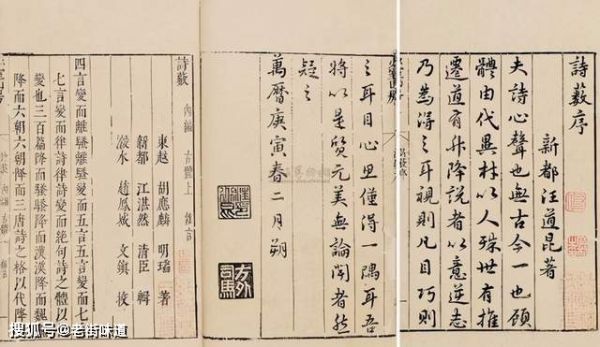 詩藪序
新都汪道昆著
夫詩心聲也無古今一也顧
體由代異材以人殊世有推
遷道有升降說者以意逆志
乃為得之耳視則凡目巧則
之耳目心思僅得一隅耳吾
將以是質元美無論聞者然
疑之
萬曆庚寅春二月朔
方外司馬
詩藪 內編 古體上 雜言
東越 胡應麟 明瑞 著
新都 江湛然 清臣 輯
水 趙鳳城 文鎮 校
四言變而離騷離騷變而五言五言變而七
七言變而律詩律詩變而絕句詩之體以
變也三百篇降而騷騷降而漢漢降而魏
降而六朝六朝降而三唐詩之格以代降
搜狐号@老街味道